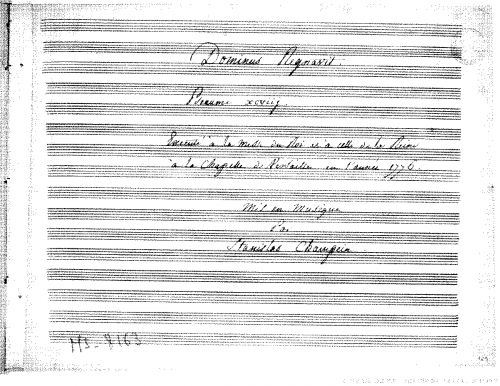 Dominus Regnavit.
Pseaume xcviij.
Executé à la messe du Roi et à celle de la Reine
à la Chapelle de Versailles en l'année 1776
Mis en Musique
Par
Stanislas Champein
MS-8163